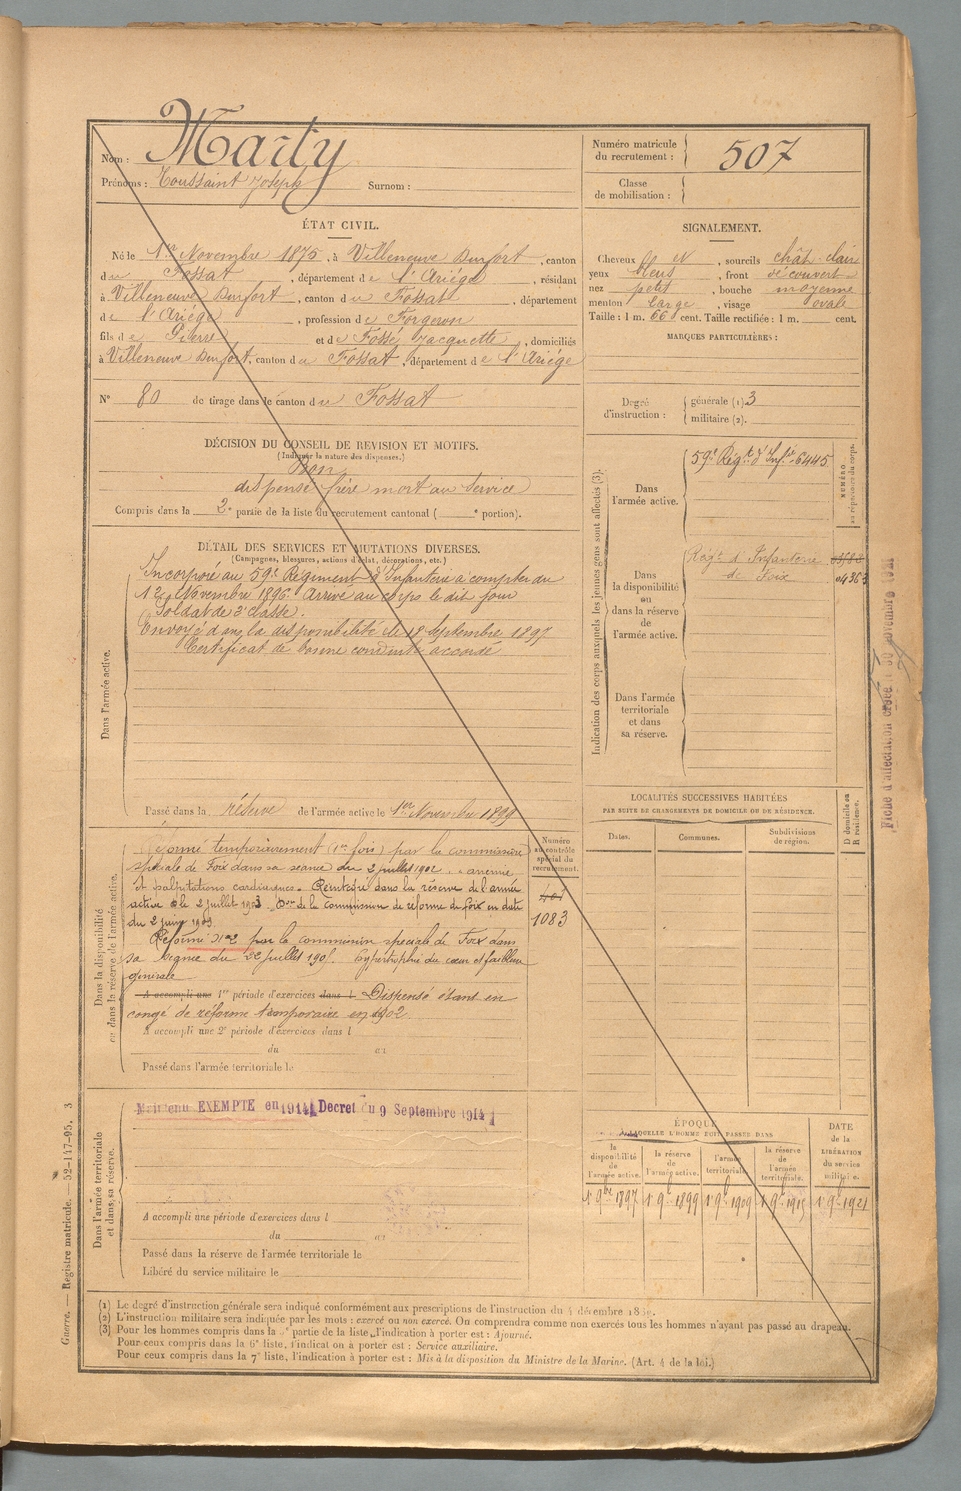 Nom : Marty
Prénoms : Toussaint Joseph Surnom :
Numéro matricule
du recrutement : 507
Classe
de mobilisation :
ÉTAT CIVIL.
Né le 1er Novembre 1875, à Villeneuve Durfort, canton
du Fossat, département de l'Ariége, résidant
à Villeneuve Durfort, canton du Fossat, département
de l'Ariége, profession de Forgeron
fils de Pierre et de Fossé Jacquette, domiciliés
à Villeneuve Durfort, canton du Fossat, département de l'Ariége
N° 80 de tirage dans le canton du Fossat
SIGNALEMENT.
Cheveux N, sourcils chât. clair
yeux bleus, front découvert
nez petit, bouche moyenne
menton large, visage ovale
Taille : 1 m. 66 cent. Taille rectifiée : 1 m. cent.
MARQUES PARTICULIÈRES :
Degré
d'instruction :
générale (1) 3
militaire (2).
DÉCISION DU CONSEIL DE REVISION ET MOTIFS.
(Indiquer la nature des dispenses.)
Bon
dispensé frère mort au Service
Compris dans la 2e partie de la liste du recrutement cantonal ( e portion).
DÉTAIL DES SERVICES ET MUTATIONS DIVERSES.
(Campagnes, blessures, actions d'éclat, décorations, etc.)
Dans l'armée active.
Incorporé au 59e Régiment d'Infanterie à compter du
12 Novembre 1896. Arrivé au corps le dit jour
Soldat de 2e classe.
Envoyé dans la disponibilité le 18 Septembre 1897
Certificat de bonne conduite accordé
Passé dans la réserve de l'armée active le 1er Novembre 1899
Indication des corps auxquels les jeunes gens sont affectés (3).
Dans
l'armée active.
59e Régt d'Infie 6445
NUMÉRO
au répertoire du corps.
Dans
la disponibilité
ou
dans la réserve
de
l'armée active.
Régt d'Infanterie
de Foix
04363
Dans l'armée
territoriale
et dans
sa réserve.
Fiche d'affectation créée le 30 novembre 1921
LOCALITÉS SUCCESSIVES HABITÉES
PAR SUITE DE CHANGEMENTS DE DOMICILE OU DE RÉSIDENCE.
Dates. Communes. Subdivisions
de région.
D domicile ou
R résidence.
Dans la disponibilité
ou dans la réserve de l'armée active.
Numéro
au contrôle
spécial du
recrutement.
1083
Réformé temporairement (1re fois) par la commission
spéciale de Foix dans sa séance du 2 juillet 1902. anémie
et palpitations cardiaques. Réintégré dans la réserve de l'armée
active le 2 juillet 1903. Don de la commission de réforme de Foix en date
du 2 juin 1903
Réformé N° 2 par la commission spéciale de Foix dans
sa séance du 22 juillet 1905. Hypertrophie du cœur et faiblesse
générale
A accompli une 1re période d'exercices dans l Dispensé étant en
congé de réforme temporaire en 1902
A accompli une 2e période d'exercices dans l
du au
Passé dans l'armée territoriale le
Dans l'armée territoriale
et dans sa réserve.
Maintenu EXEMPTE en 1914 Decret du 9 Septembre 1914
A accompli une période d'exercices dans l
du au
Passé dans la réserve de l'armée territoriale le
Libéré du service militaire le
ÉPOQUE
à LAQUELLE L'HOMME DOIT PASSER DANS
la
disponibilité
de
l'armée active.
la réserve
de
l'armée active.
l'armée
territoriale.
la réserve
de
l'armée
territoriale.
DATE
de la
LIBÉRATION
du service
militaire.
1 9bre 1897 1 9b 1899 1 9b 1909 1 9b 1915 1 9b 1921
(1) Le degré d'instruction générale sera indiqué conformément aux prescriptions de l'instruction du 4 décembre
(2) L'instruction militaire sera indiquée par les mots : exercé ou non exercé. On comprendra comme non exercés tous les hommes n'ayant pas passé au drapeau.
(3) Pour les hommes compris dans la partie de la liste, l'indication à porter est : Ajourné.
Pour ceux compris dans la 6e liste, l'indication à porter est : Service auxiliaire.
Pour ceux compris dans la 7e liste, l'indication à porter est : Mis à la disposition du Ministre de la Marine. (Art. 4 de la loi.)
Guerre. — Registre matricule. — 52-147-95. 3